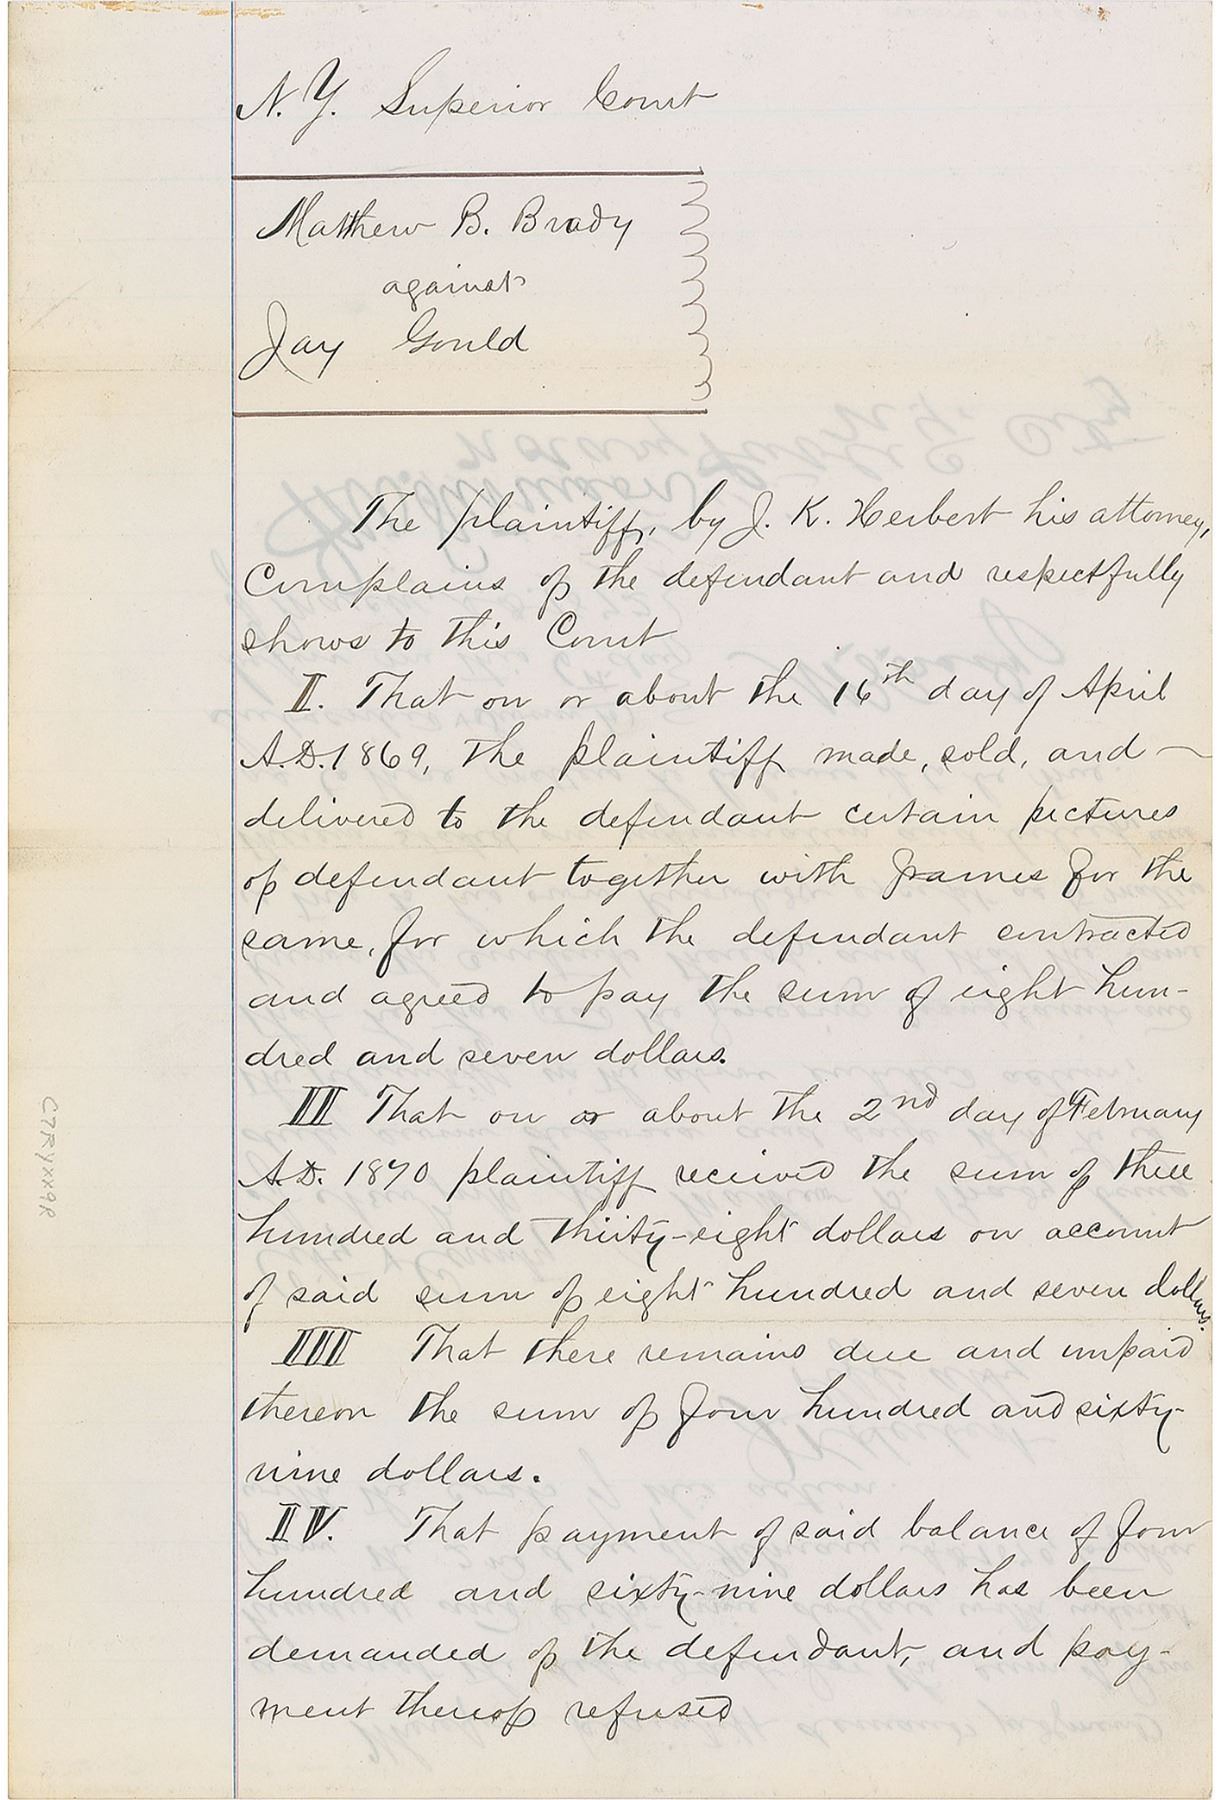 N. Y. Superior Court
Matthew B. Brady
against
Jay Gould
The plaintiff, by J. K. Herbert his attorney,
Complains of the defendant and respectfully
shows to this Court
I. That on or about the 16th day of April
A.D. 1869, the plaintiff made, sold, and —
delivered to the defendant certain pictures
of defendant together with frames for the
same, for which the defendant contracted
and agreed to pay the sum of eight hun-
dred and seven dollars.
II That on or about the 2nd day of February
A.D. 1870 plaintiff received the sum of three
hundred and thirty-eight dollars on account
of said sum of eight hundred and seven dollars.
III That there remains due and unpaid
thereon the sum of four hundred and sixty-
nine dollars.
IV. That payment of said balance of four
hundred and sixty-nine dollars has been
demanded of the defendant, and pay-
ment thereof refused